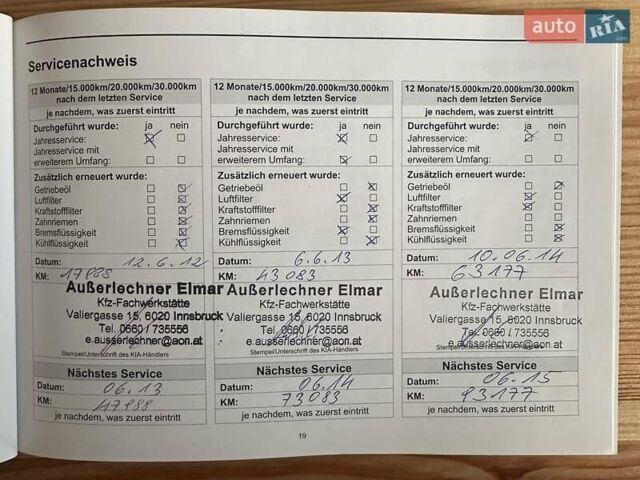 auto RIA .com
Servicenachweis
12 Monate/15.000km/20.000km/30.000km
nach dem letzten Service
je nachdem, was zuerst eintritt
Durchgeführt wurde: ja nein
Jahresservice:
Jahresservice mit
erweiterem Umfang:
Zusätzlich erneuert wurde:
Getriebeöl
Luftfilter
Kraftstofffilter
Zahnriemen
Bremsflüssigkeit
Kühlflüssigkeit
Datum: 12.6.12
KM: 17988
Außerlechner Elmar
Kfz-Fachwerkstätte
Valiergasse 15, 6020 Innsbruck
Tel. 0660 / 735556
e.ausserlechner@aon.at
Stempel/Unterschrift des KIA-Händlers
Nächstes Service
Datum: 06.13
KM: 47988
je nachdem, was zuerst eintritt
12 Monate/15.000km/20.000km/30.000km
nach dem letzten Service
je nachdem, was zuerst eintritt
Durchgeführt wurde: ja nein
Jahresservice:
Jahresservice mit
erweiterem Umfang:
Zusätzlich erneuert wurde:
Getriebeöl
Luftfilter
Kraftstofffilter
Zahnriemen
Bremsflüssigkeit
Kühlflüssigkeit
Datum: 6.6.13
KM: 43083
Außerlechner Elmar
Kfz-Fachwerkstätte
Valiergasse 15, 6020 Innsbruck
Tel. 0660 / 735556
e.ausserlechner@aon.at
Stempel/Unterschrift des KIA-Händlers
Nächstes Service
Datum: 06.14
KM: 73083
je nachdem, was zuerst eintritt
12 Monate/15.000km/20.000km/30.000km
nach dem letzten Service
je nachdem, was zuerst eintritt
Durchgeführt wurde: ja nein
Jahresservice:
Jahresservice mit
erweiterem Umfang:
Zusätzlich erneuert wurde:
Getriebeöl
Luftfilter
Kraftstofffilter
Zahnriemen
Bremsflüssigkeit
Kühlflüssigkeit
Datum: 10.06.14
KM: 63177
Außerlechner Elmar
Kfz-Fachwerkstätte
Valiergasse 15, 6020 Innsbruck
Tel. 0660 / 735556
e.ausserlechner@aon.at
Stempel/Unterschrift des KIA-Händlers
Nächstes Service
Datum: 06.15
KM: 93177
je nachdem, was zuerst eintritt
19